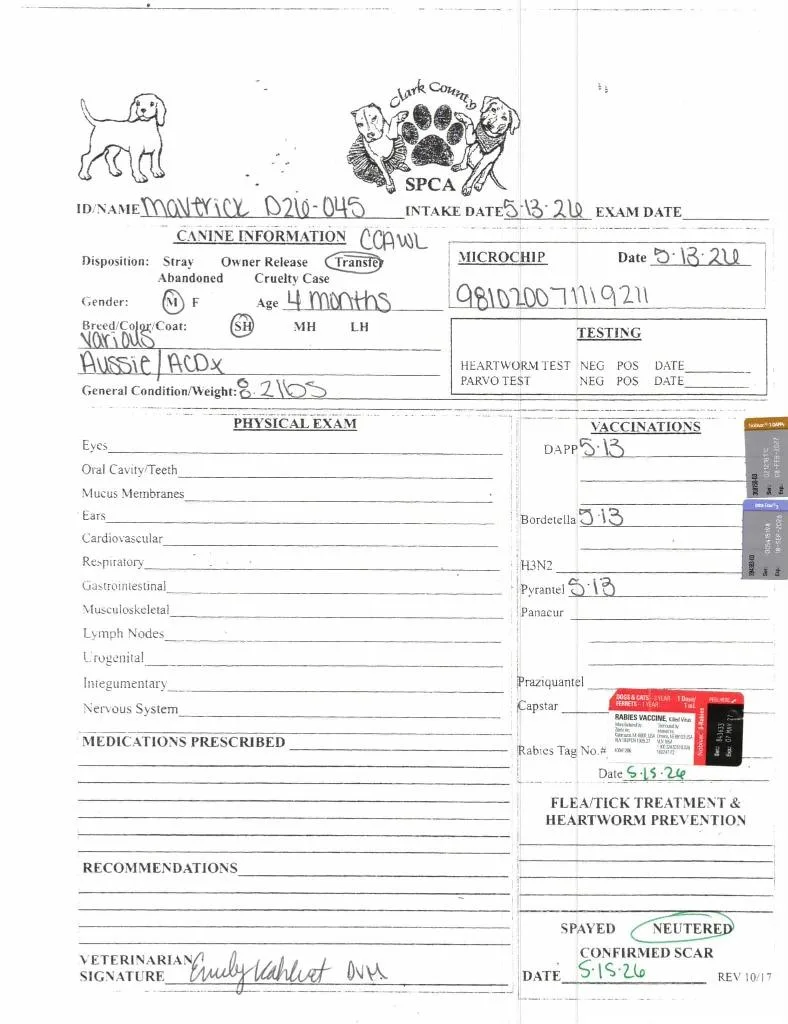 Clark County
SPCA
ID/NAME Maverick D26-045 INTAKE DATE 5·13·26 EXAM DATE
CANINE INFORMATION CCAWL
Disposition: Stray Owner Release Transfer
Abandoned Cruelty Case
Gender: M F Age 4 months
Breed/Color/Coat: SH MH LH
various
Aussie/ACDx
General Condition/Weight: 8.2lbs
MICROCHIP Date 5·13·26
981020071119211
TESTING
HEARTWORM TEST NEG POS DATE
PARVO TEST NEG POS DATE
PHYSICAL EXAM
Eyes
Oral Cavity/Teeth
Mucus Membranes
Ears
Cardiovascular
Respiratory
Gastrointestinal
Musculoskeletal
Lymph Nodes
Urogenital
Integumentary
Nervous System
MEDICATIONS PRESCRIBED
RECOMMENDATIONS
VETERINARIAN
SIGNATURE Emily Kahlest DVM
VACCINATIONS
DAPP 5·13
Bordetella 5·13
H3N2
Pyrantel 5·13
Panacur
Praziquantel
Capstar
DOGS & CATS - 3 YEAR 1 Dose
FERRETS - 1 YEAR 1 mL
PEEL HERE
RABIES VACCINE, Killed Virus
Nobivac 3-Rabies
Exp: 07 MAY 27
Rabies Tag No.#
Date 5·15·26
FLEA/TICK TREATMENT &
HEARTWORM PREVENTION
SPAYED NEUTERED
CONFIRMED SCAR
DATE 5·15·26 REV 10/17